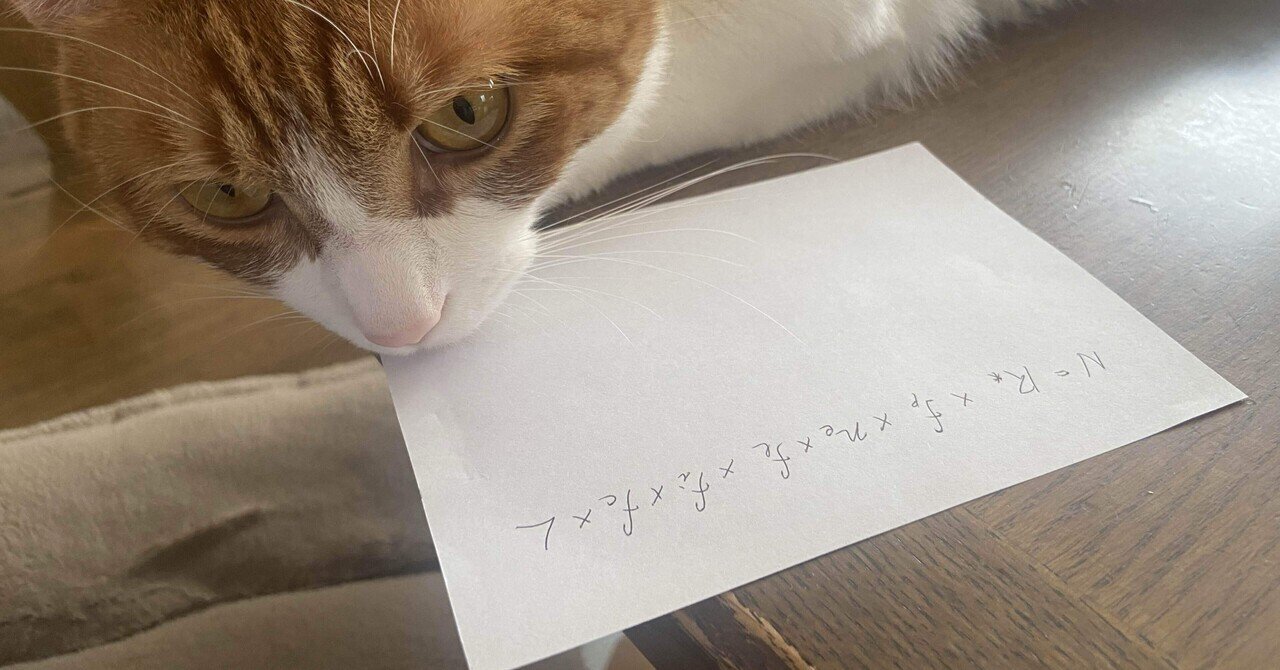 N = R* × fp × ne × fl × fi × fc × L